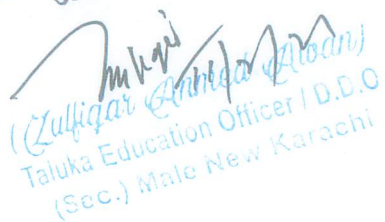 (Zulfiqar Ahmed Awan)
Taluka Education Officer / D.D.O
(Sec.) Male New Karachi